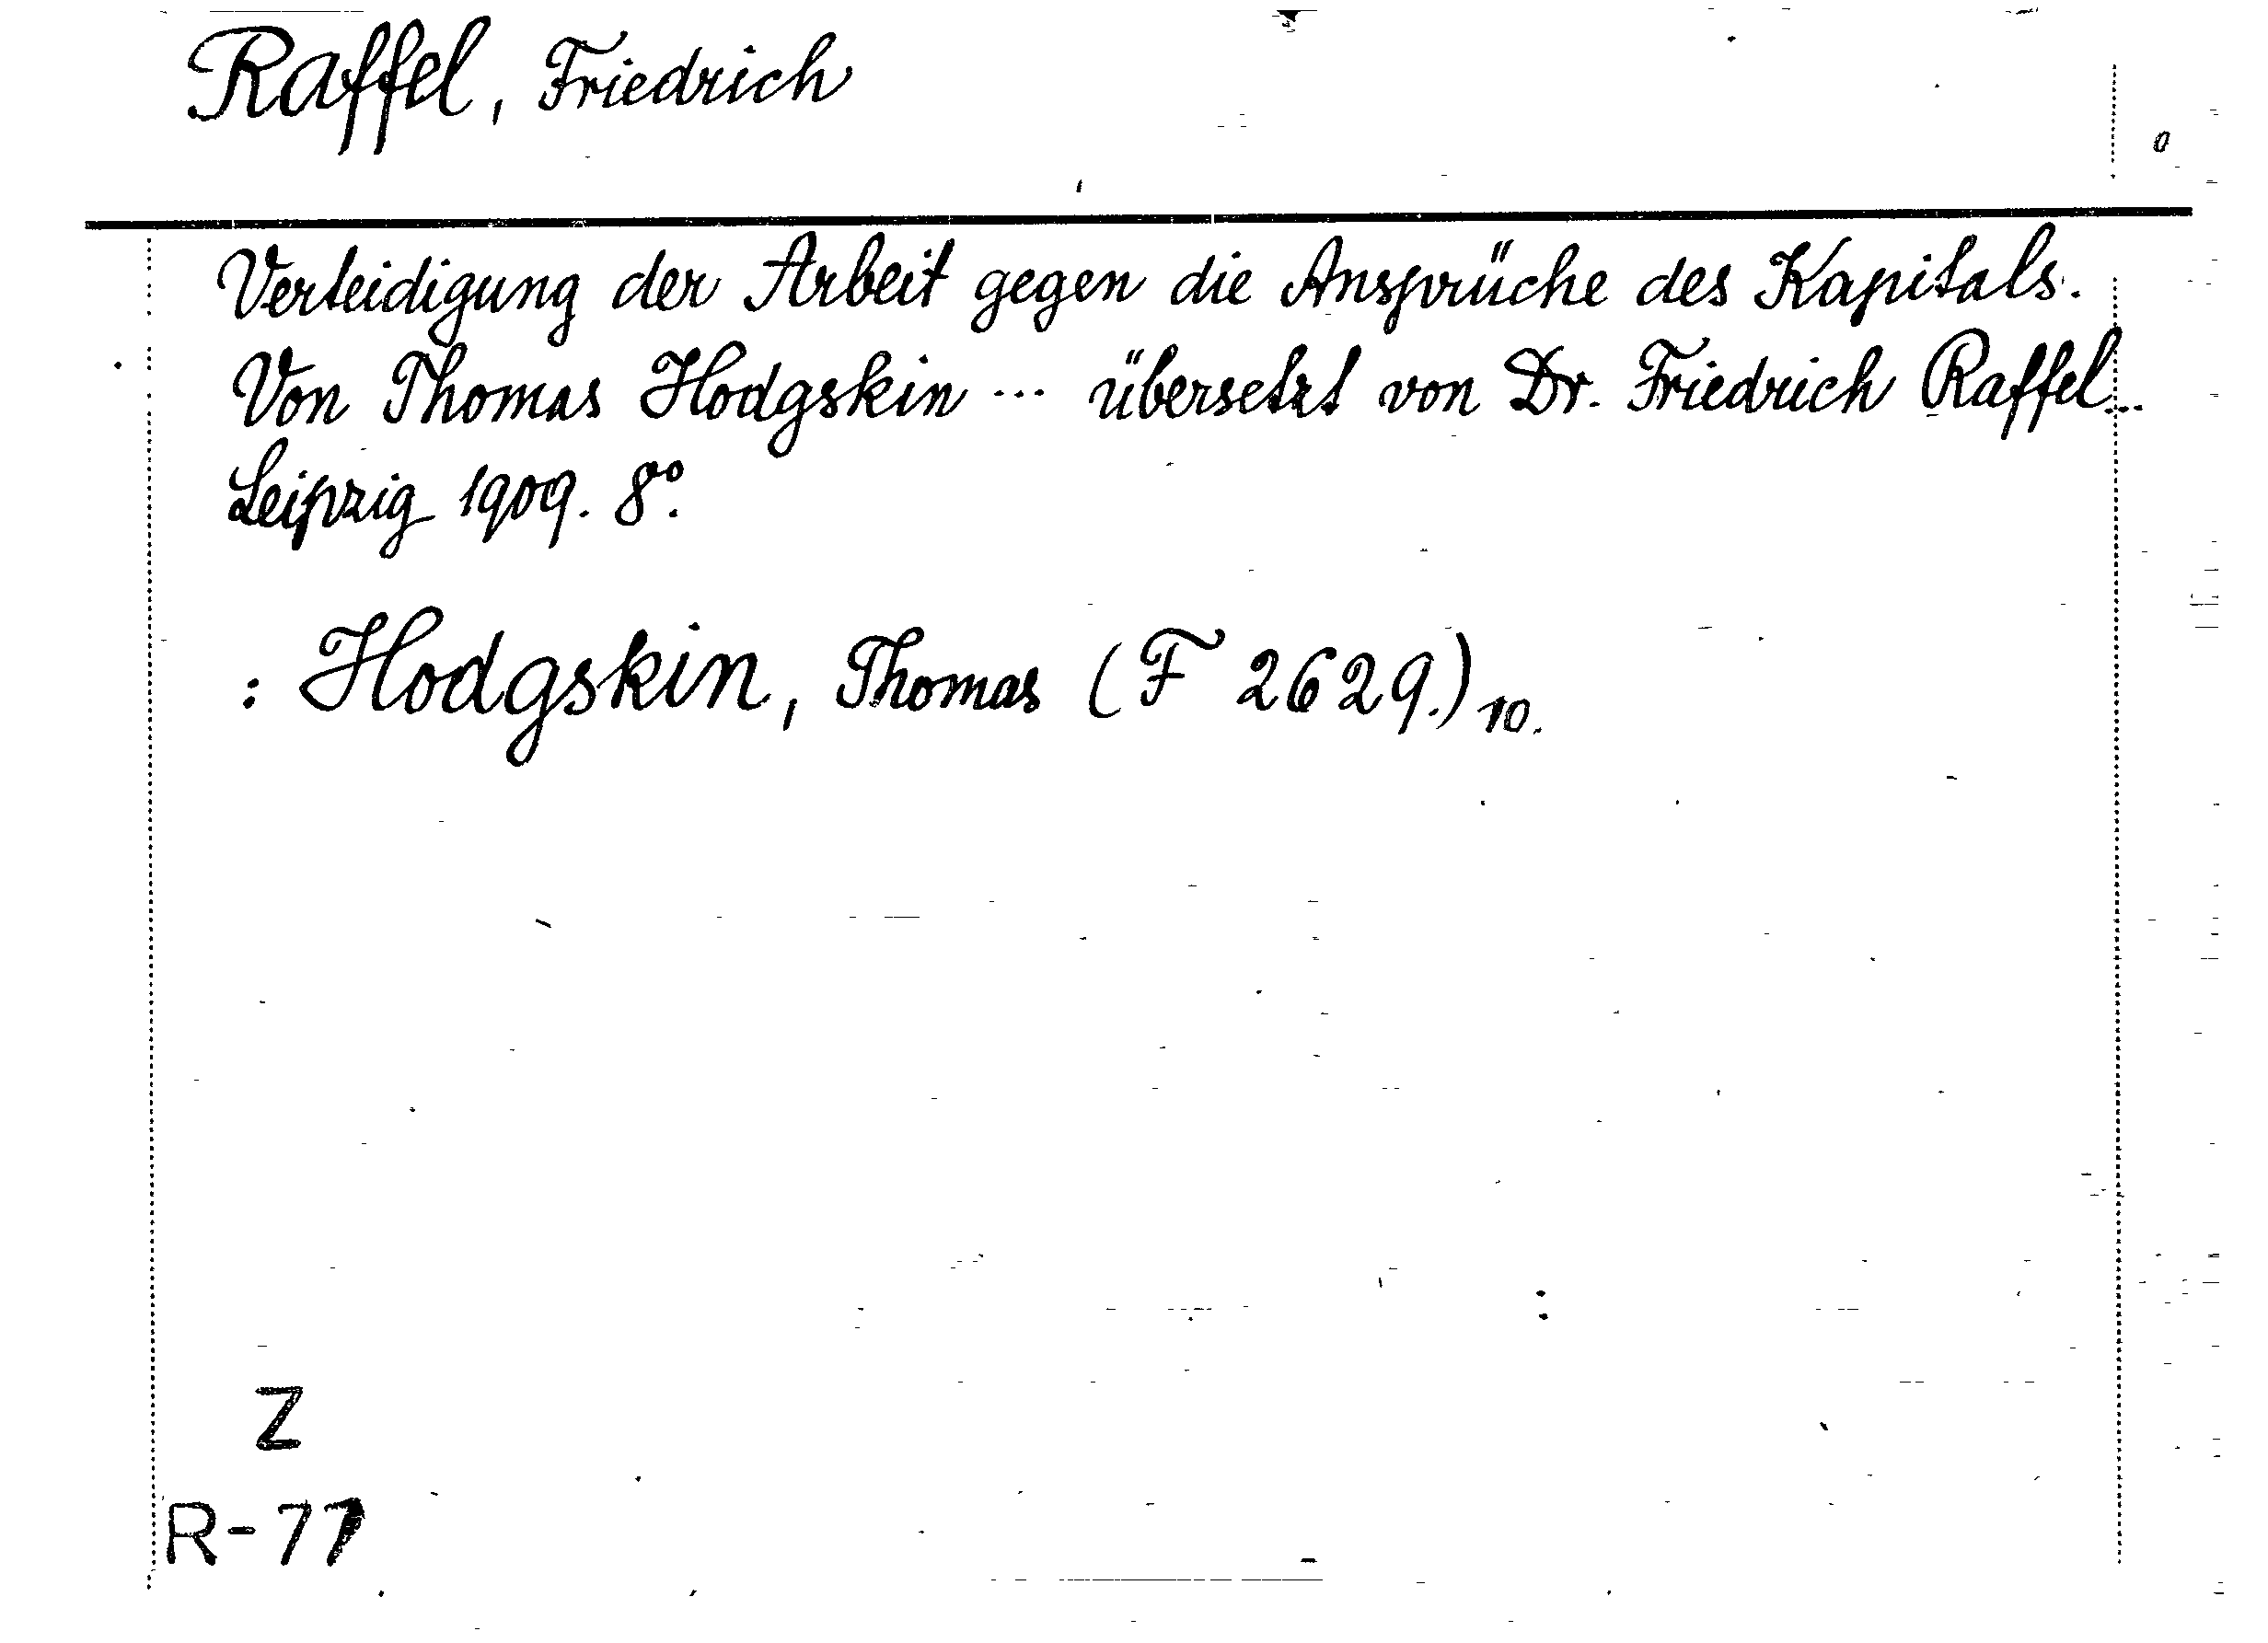 Raffel, Friedrich
Verteidigung der Arbeit gegen die Ansprüche des Kapitals.
Von Thomas Hodgskin ... übersetzt von Dr. Friedrich Raffel...
Leipzig 1909. 8°.
: Hodgskin, Thomas (F 2629.) 10.
Z
R-77